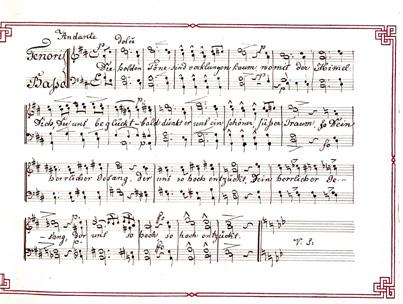 Andante dolce
Tenori
Die holden Töne sind verklungen kaum womit der Himel
Bassi
Dich Du uns beglückt - bald dünkt er uns ein schöner süßer Traum, so Dein
herrlicher Gesang, der uns so hoch entzückt, Dein herrlicher Ge-
sang, der uns so hoch so hoch entzückt.
V. S.